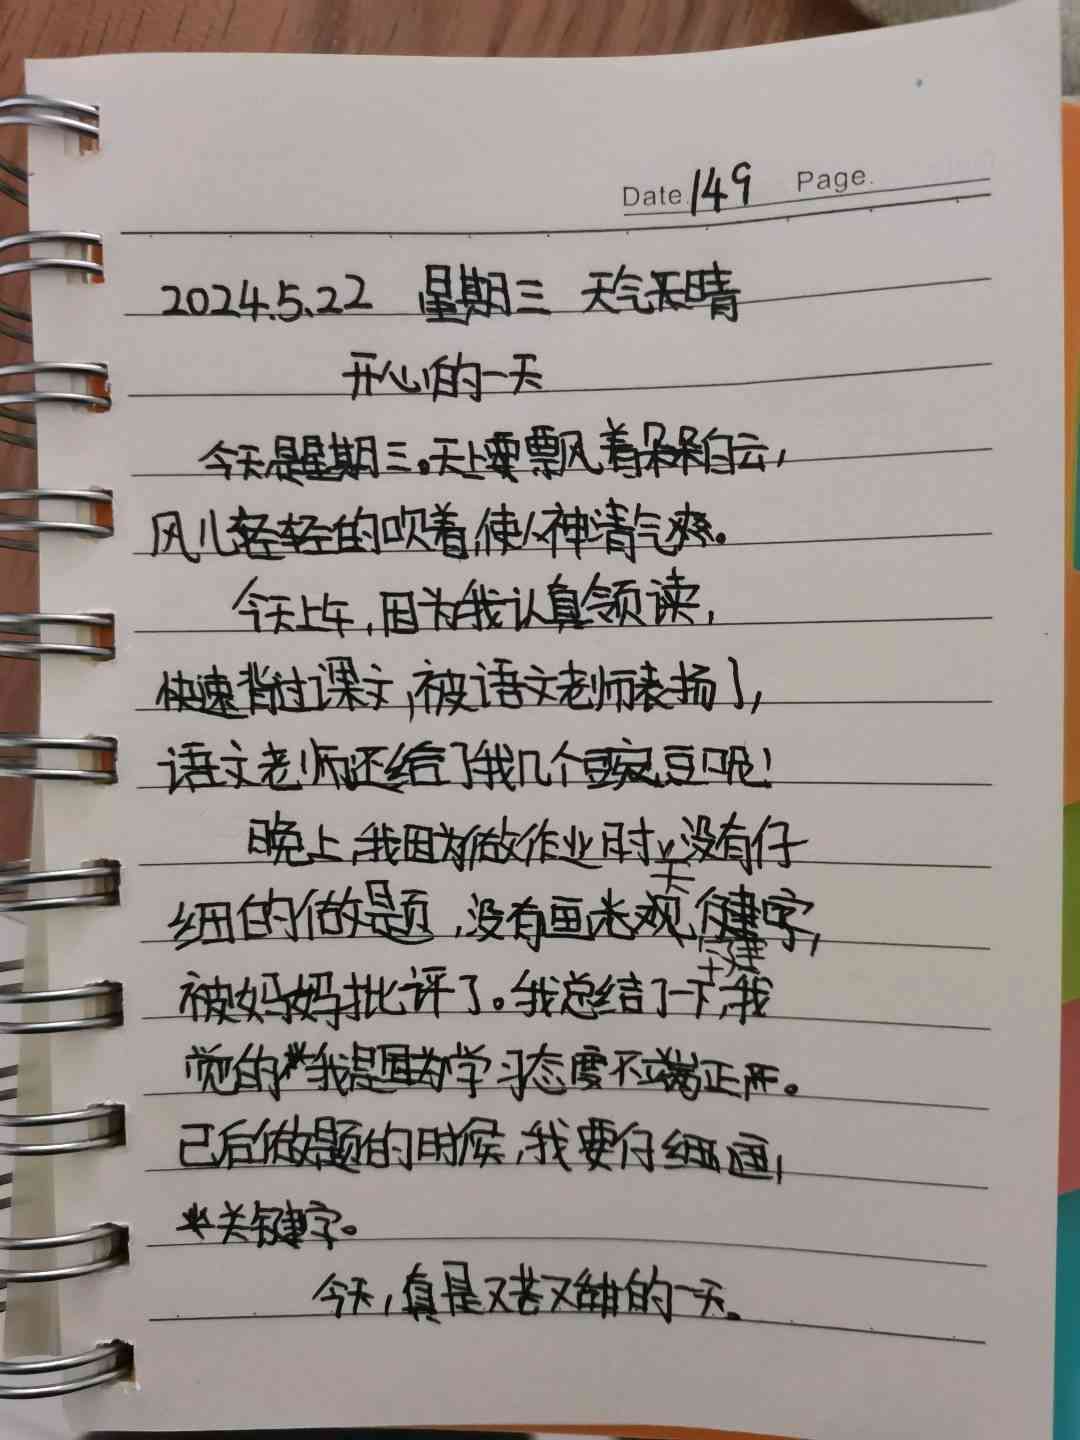 Date. 149 Page.
2024.5.22 星期三 天气天晴
开心的一天
今天是星期三。天上要飘着朵朵白云,
风儿轻轻的吹着,使人神清气爽。
今天上午,因为我认真领读,
快速背过课文,被语文老师表扬了,
语文老师还给了我几个豌豆呢!
晚上,我因为做作业时没有仔
细的做题,没有画
关键字,
被妈妈批评了。我总结了一下,我
觉的我是因为学习态度不端正
已后做题的时候,我要仔细画,
关键字。
今天,真是又苦又甜的一天。